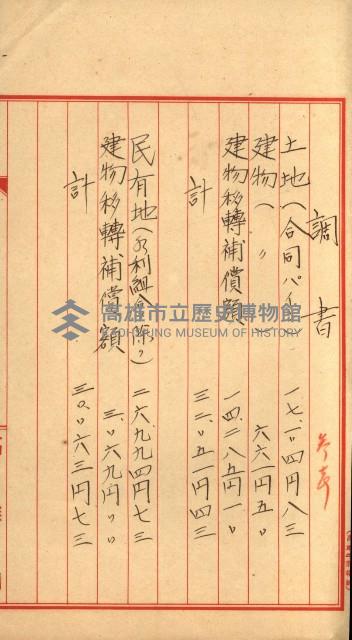 調書
土地(合同パイン) 一七、〇四円八三
建物( 〃 ) 六六一円五〇
建物移轉補償額 一四、二八五円一〇
計 三二、〇五一円四三
民有地(水利組合除ク) 二六、九九四円七三
建物移轉補償額 三、〇六九円〇〇
計 三〇、〇六三円七三
高雄市立歷史博物館
KAOHSIUNG MUSEUM OF HISTORY